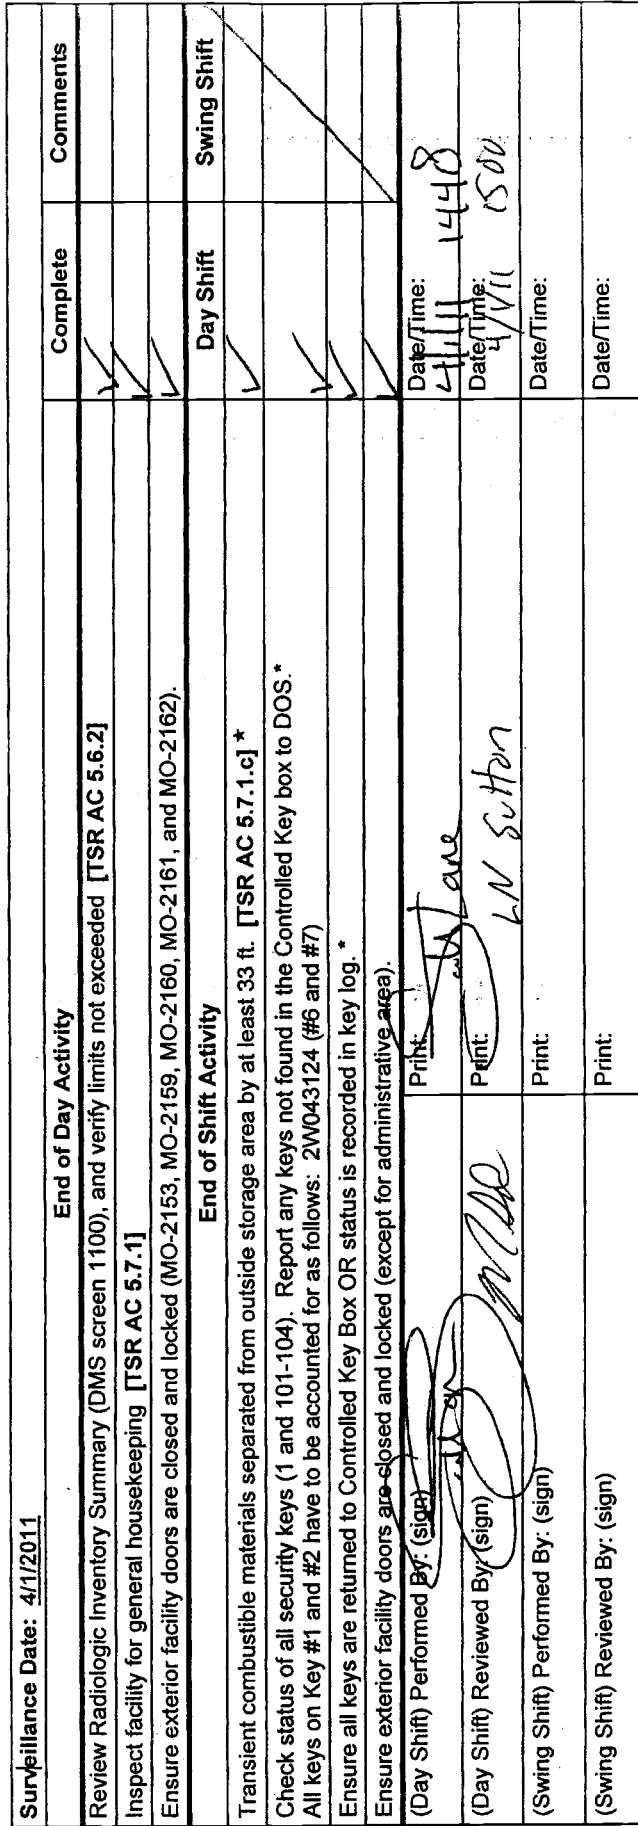 Surveillance Date: 4/1/2011
End of Day Activity Complete Comments
Review Radiologic Inventory Summary (DMS screen 1100), and verify limits not exceeded [TSR AC 5.6.2] ✓
Inspect facility for general housekeeping [TSR AC 5.7.1] ✓
Ensure exterior facility doors are closed and locked (MO-2153, MO-2159, MO-2160, MO-2161, and MO-2162). ✓
End of Shift Activity Day Shift Swing Shift
Transient combustible materials separated from outside storage area by at least 33 ft. [TSR AC 5.7.1.c] * ✓
Check status of all security keys (1 and 101-104). Report any keys not found in the Controlled Key box to DOS.*
All keys on Key #1 and #2 have to be accounted for as follows: 2W043124 (#6 and #7) ✓
Ensure all keys are returned to Controlled Key Box OR status is recorded in key log. * ✓
Ensure exterior facility doors are closed and locked (except for administrative area). ✓
(Day Shift) Performed By: (sign) Print: Lane Date/Time: 4/1/11 1448
(Day Shift) Reviewed By: (sign) Print: LN Sutton Date/Time: 4/1/11 1500
(Swing Shift) Performed By: (sign) Print: Date/Time:
(Swing Shift) Reviewed By: (sign) Print: Date/Time: